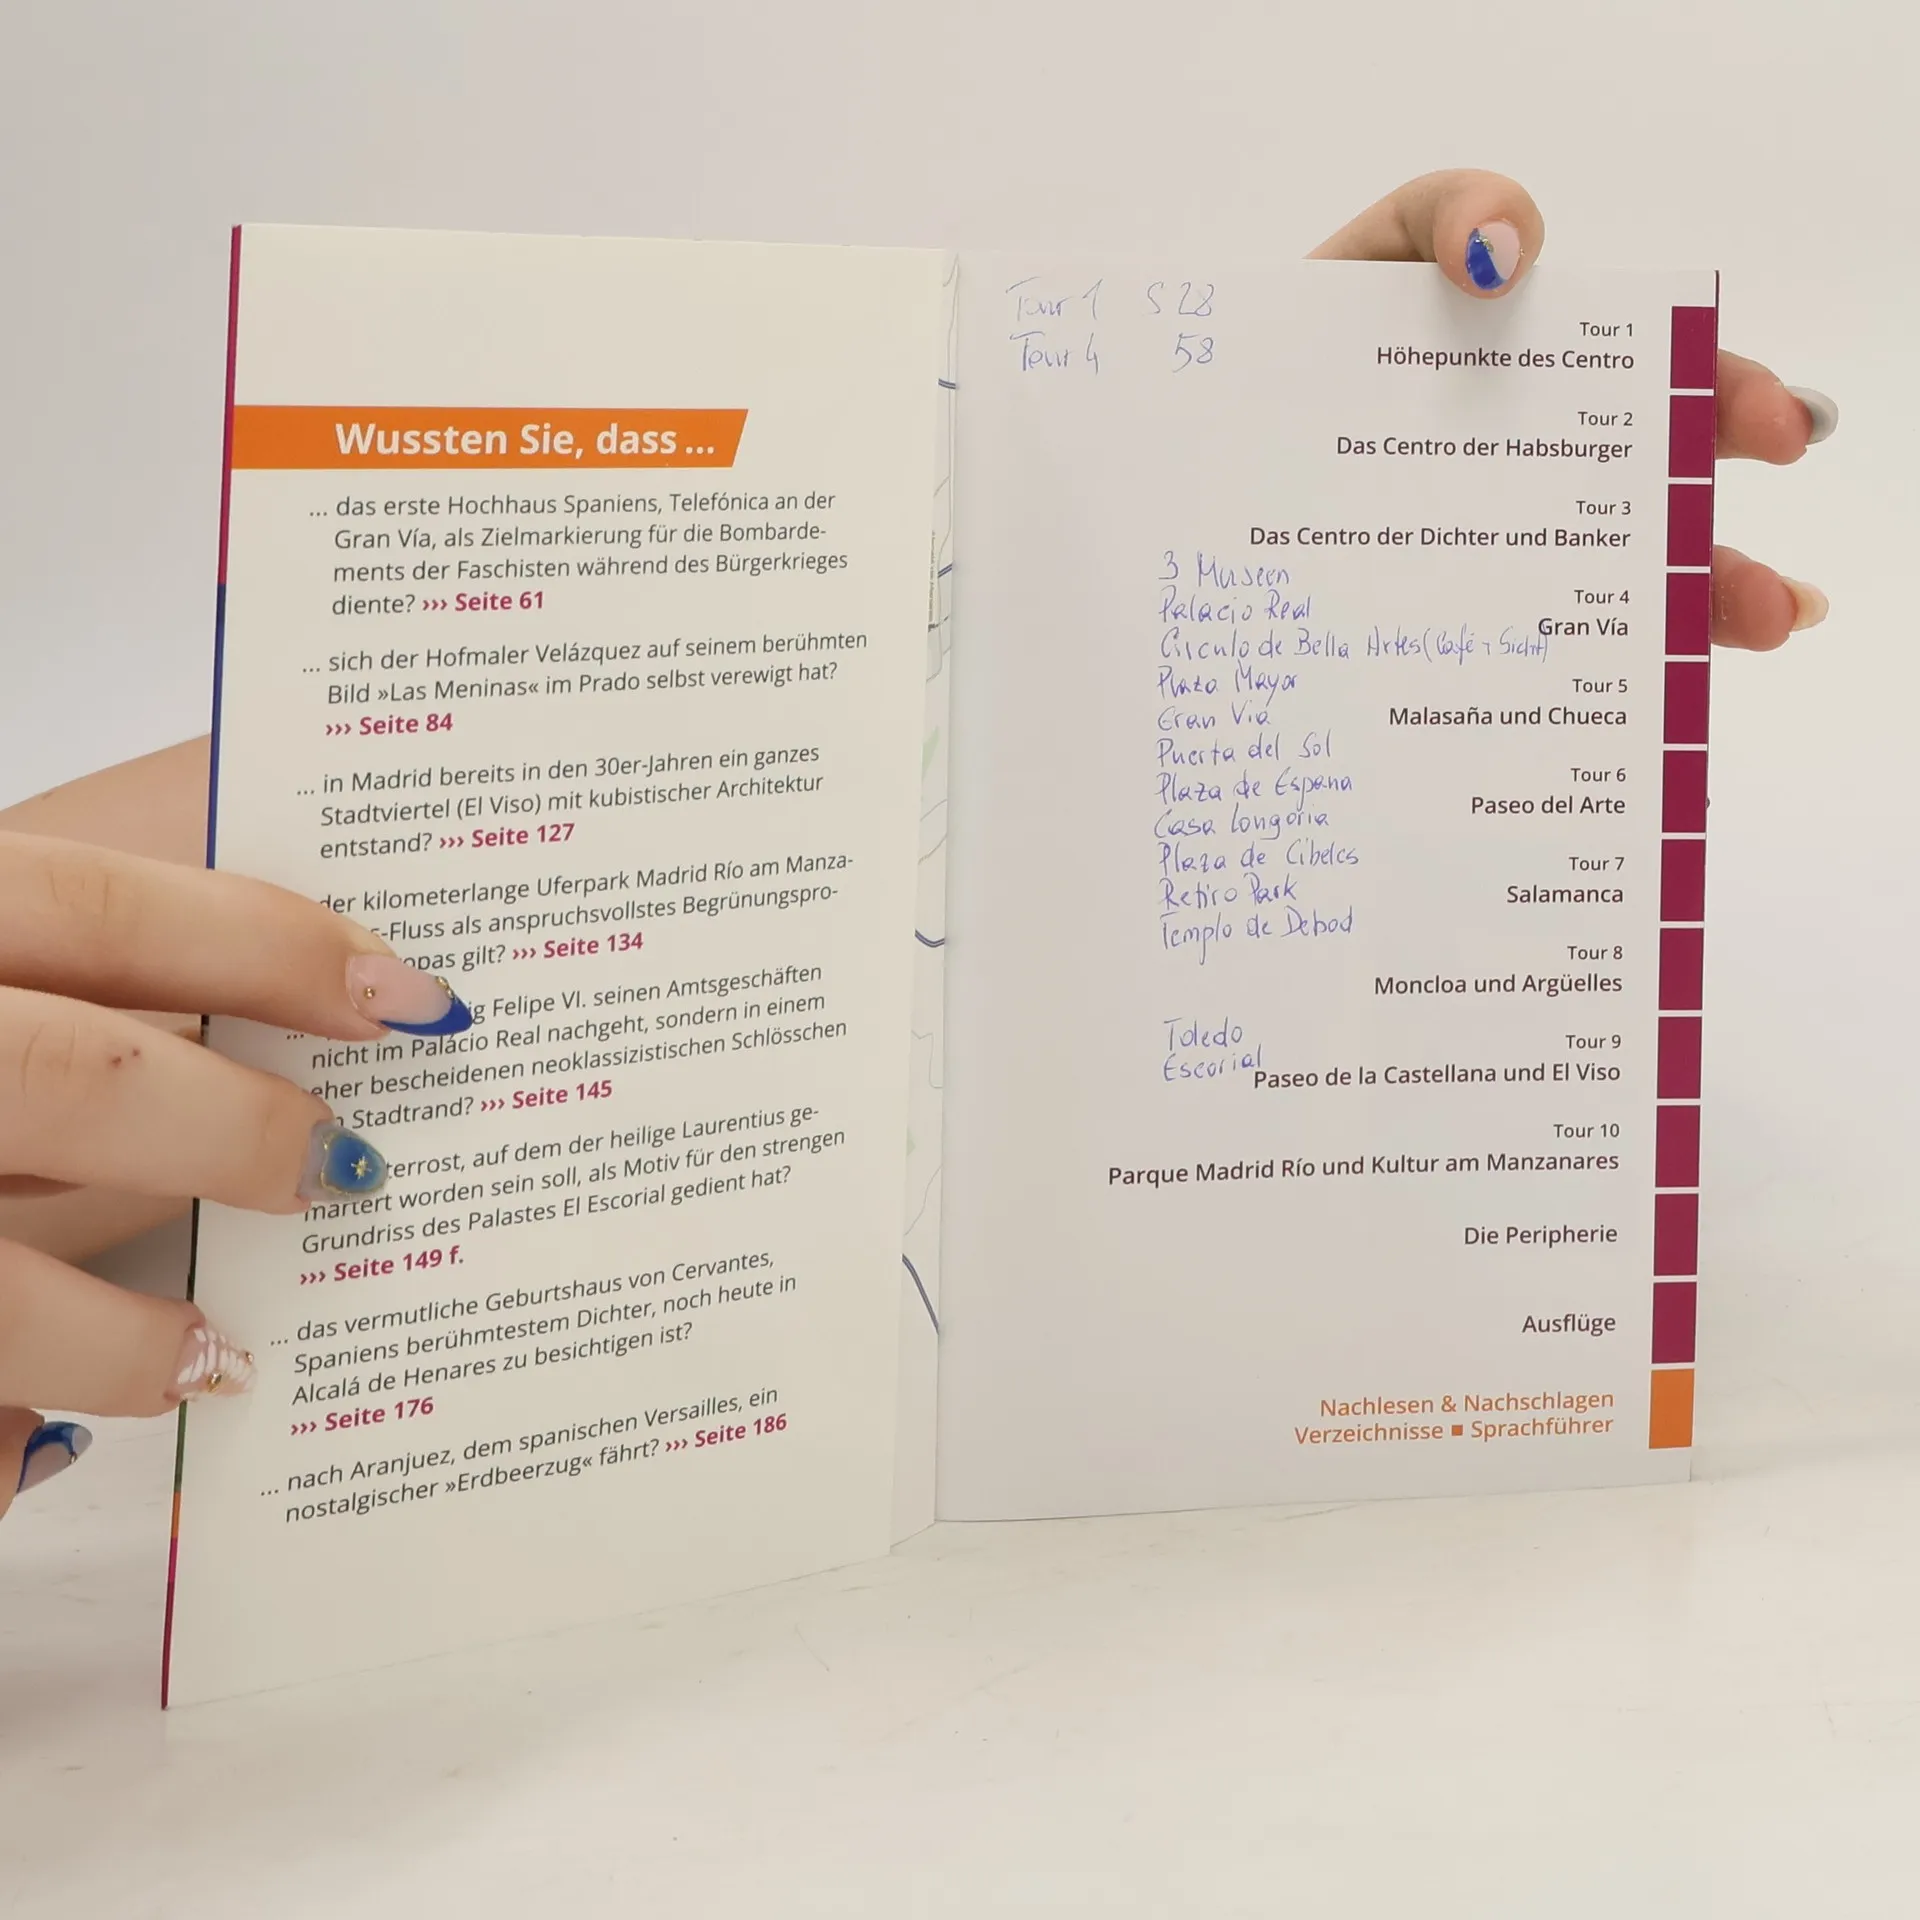 Wussten Sie, dass ...
... das erste Hochhaus Spaniens, Telefónica an der
Gran Vía, als Zielmarkierung für die Bombarde-
ments der Faschisten während des Bürgerkrieges
diente? ››› Seite 61
... sich der Hofmaler Velázquez auf seinem berühmten
Bild »Las Meninas« im Prado selbst verewigt hat?
››› Seite 84
... in Madrid bereits in den 30er-Jahren ein ganzes
Stadtviertel (El Viso) mit kubistischer Architektur
entstand? ››› Seite 127
der kilometerlange Uferpark Madrid Río am Manza-
-Fluss als anspruchsvollstes Begrünungspro-
opas gilt? ››› Seite 134
... ig Felipe VI. seinen Amtsgeschäften
nicht im Palácio Real nachgeht, sondern in einem
eher bescheidenen neoklassizistischen Schlösschen
Stadtrand? ››› Seite 145
terrost, auf dem der heilige Laurentius ge-
martert worden sein soll, als Motiv für den strengen
Grundriss des Palastes El Escorial gedient hat?
››› Seite 149 f.
... das vermutliche Geburtshaus von Cervantes,
Spaniens berühmtestem Dichter, noch heute in
Alcalá de Henares zu besichtigen ist?
››› Seite 176
... nach Aranjuez, dem spanischen Versailles, ein
nostalgischer »Erdbeerzug« fährt? ››› Seite 186
Tour 1 S 28
Tour 4 58
Tour 1
Höhepunkte des Centro
Tour 2
Das Centro der Habsburger
Tour 3
Das Centro der Dichter und Banker
3 Museen
Palacio Real
Circulo de Bella Artes (Café + Sicht)
Plaza Mayor
Gran Via
Puerta del Sol
Plaza de Espana
Casa Longoria
Plaza de Cibeles
Retiro Park
Templo de Debod
Toledo
Escorial
Tour 4
Gran Vía
Tour 5
Malasaña und Chueca
Tour 6
Paseo del Arte
Tour 7
Salamanca
Tour 8
Moncloa und Argüelles
Tour 9
Paseo de la Castellana und El Viso
Tour 10
Parque Madrid Río und Kultur am Manzanares
Die Peripherie
Ausflüge
Nachlesen & Nachschlagen
Verzeichnisse ■ Sprachführer